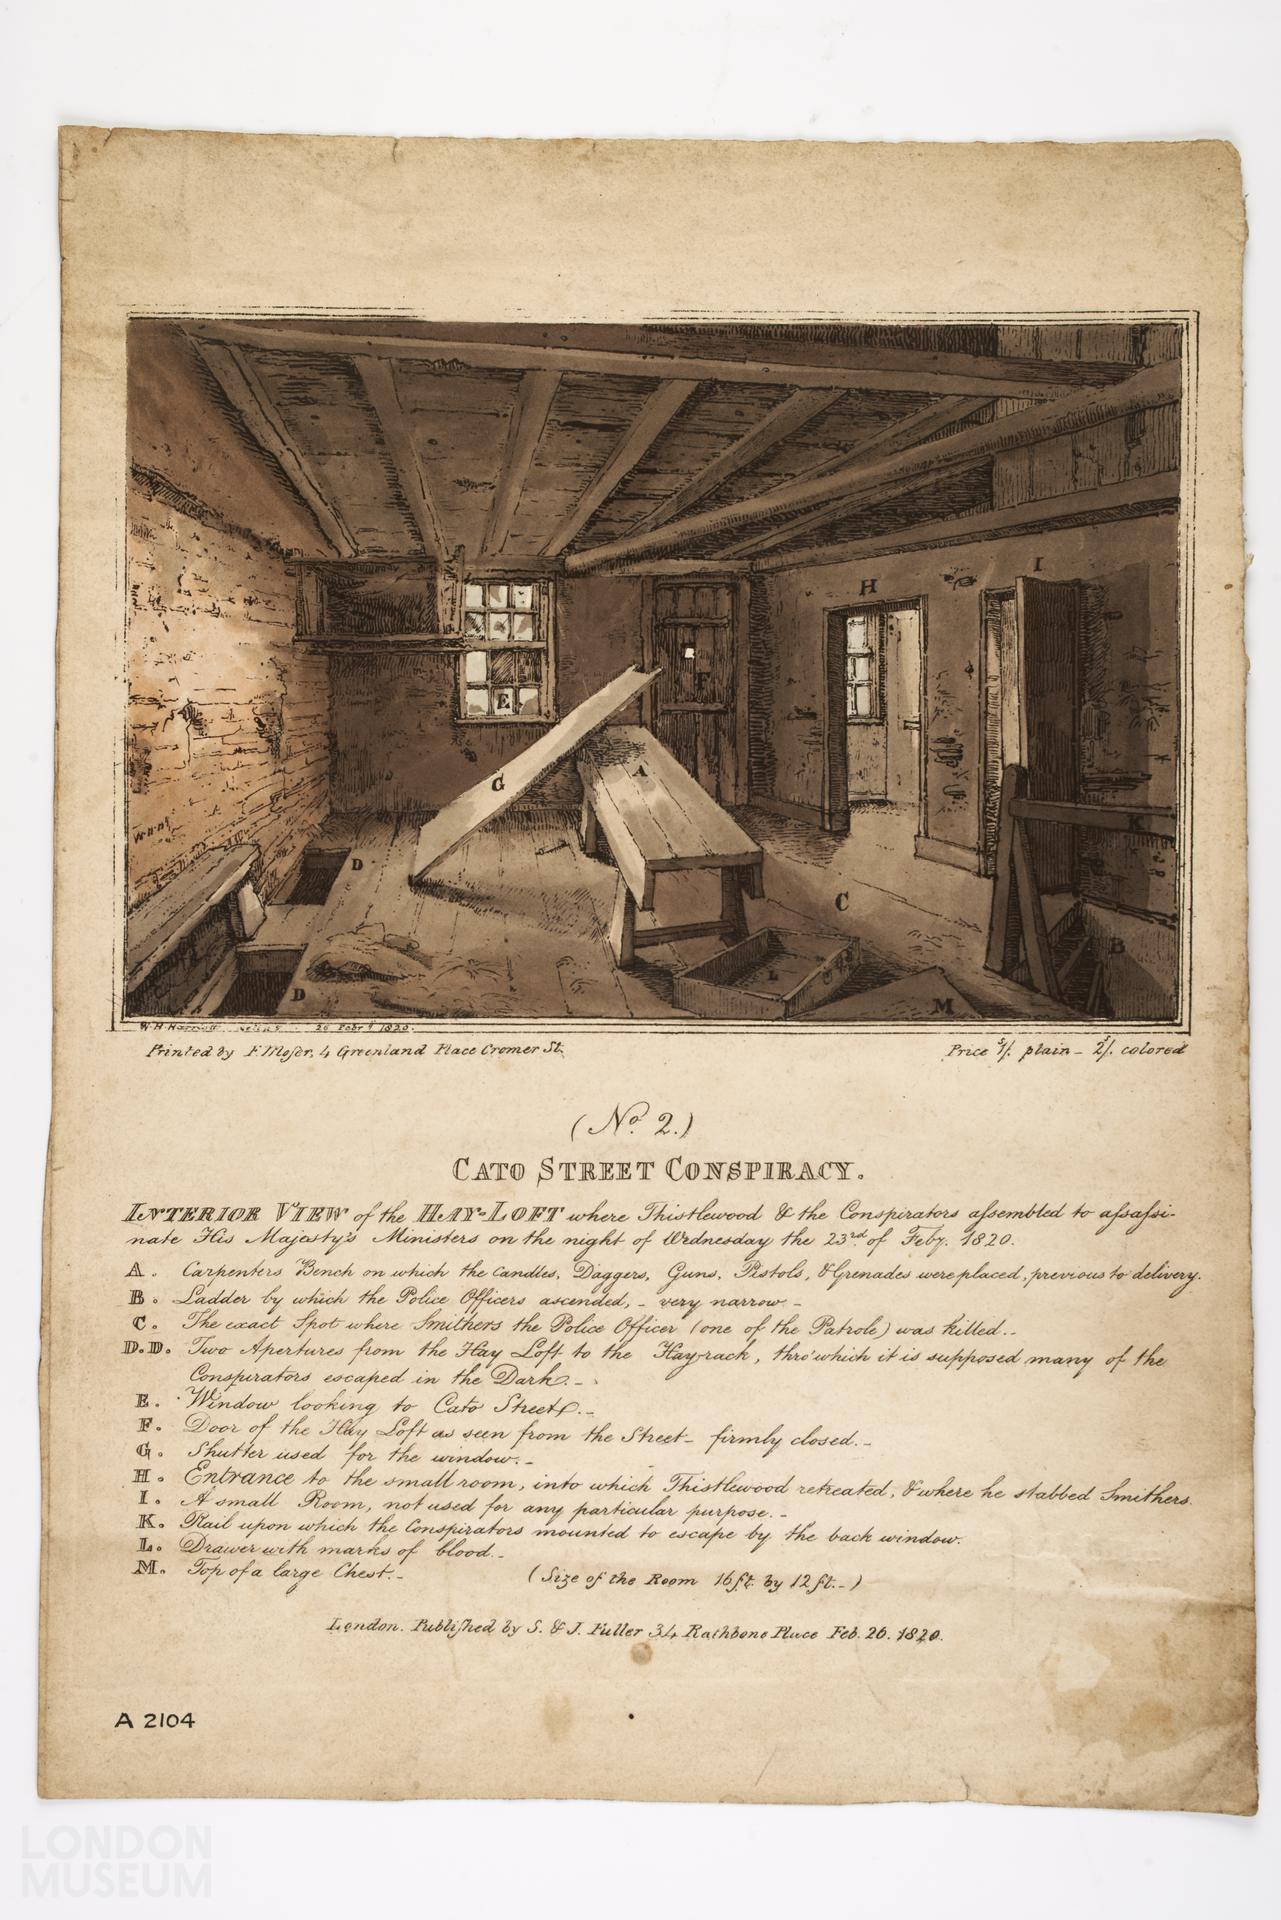 H
I
E
F
A
G
K
D
C
B
L
D
M
26 Febry 1820.
Printed by F. Moser, 4 Greenland Place Cromer St.
Price 1/. plain - 2/. colored
(No. 2.)
CATO STREET CONSPIRACY.
INTERIOR VIEW of the HAY-LOFT where Thistlewood & the Conspirators assembled to assassi-
nate His Majesty's Ministers on the night of Wednesday the 23rd of Feby. 1820.
A. Carpenters Bench on which the Candles, Daggers, Guns, Pistols, & Grenades were placed, previous to delivery.
B. Ladder by which the Police Officers ascended, - very narrow. -
C. The exact Spot where Smithers the Police Officer (one of the Patrole) was killed. -
D.D. Two Apertures from the Hay Loft to the Hay-rack, thro' which it is supposed many of the
Conspirators escaped in the Dark. -
E. Window looking to Cato Street. -
F. Door of the Hay Loft as seen from the Street - firmly closed. -
G. Shutter used for the window. -
H. Entrance to the small room, into which Thistlewood retreated, & where he stabbed Smithers.
I. A small Room, not used for any particular purpose. -
K. Rail upon which the Conspirators mounted to escape by the back window.
L. Drawer with marks of blood. -
M. Top of a large Chest. - (Size of the Room 16 ft. by 12 ft. -)
London. Published by S. & J. Fuller 34 Rathbone Place Feb. 26. 1820.
A 2104
LONDON
MUSEUM